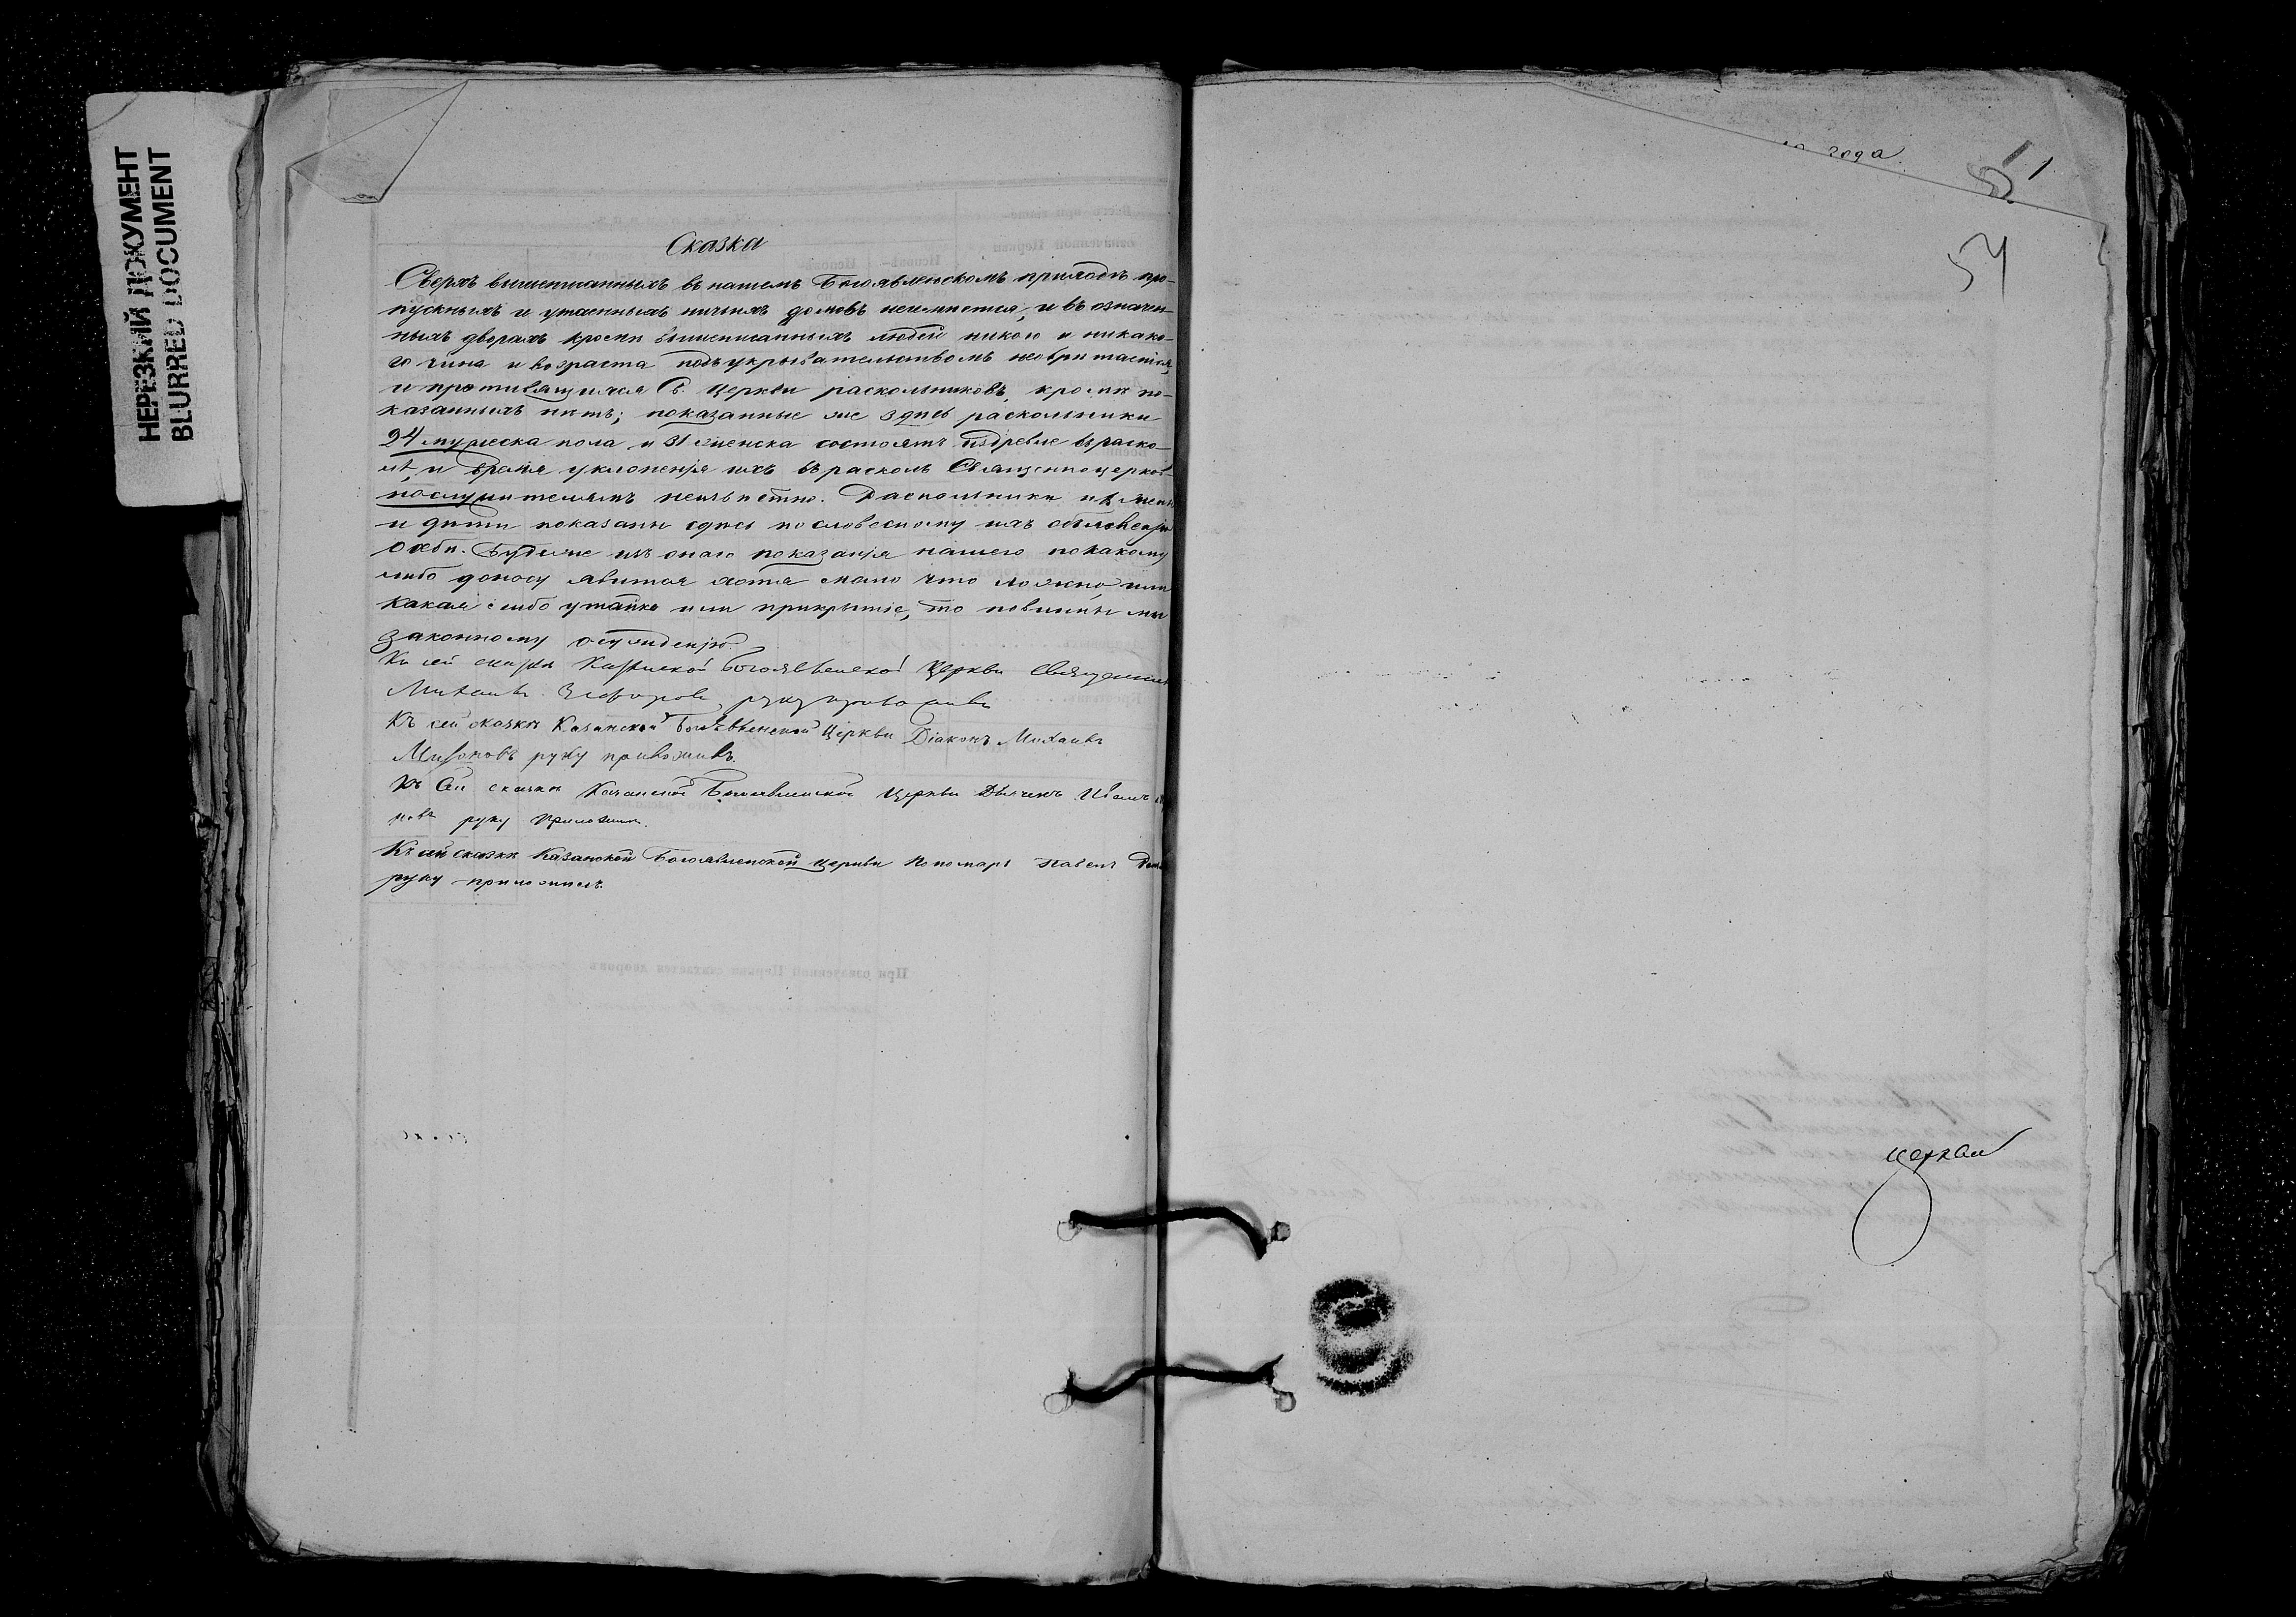 НЕРЕЗКИЙ ДОКУМЕНТ
BLURRED DOCUMENT
Сказка
Сверхъ вышеписанныхъ въ нашемъ Богоявленскомъ приходѣ про-
пускныхъ и утаенныхъ ничьихъ домовъ неимѣется, и въ означен-
ныхъ дворахъ кромѣ вышеписанныхъ людей никого и никако-
го чина и возраста подъ укрывательствомъ необрѣтается,
и противящихся С. Церкви раскольниковъ, кромѣ по-
казанныхъ нѣтъ; показанные же здѣсь раскольники
24 мужеска пола и 31 женска состоятъ издревле въ раско-
лѣ, и время уклоненія ихъ въ расколъ Священноцерков-
нослужителямъ неизвѣстно. Раскольники ихъ жены
и дѣти показаны здѣсь по словесному ихъ объявленію
о себѣ. Буде же изъ онаго показанія нашего по какому
либо доносу явится хотя мало что ложно, или
какая либо утайка или прикрытіе, то повинны мы
законному осужденію.
Къ сей сказкѣ Казанской Богоявленской Церкви Священникъ
Михаилъ руку приложилъ
Къ сей сказкѣ Казанской Богоявленской Церкви Діаконъ Михаилъ
руку приложилъ.
Къ сей сказкѣ Казанской Богоявленской Церкви Дьячекъ Иванъ
руку приложилъ.
Къ сей сказкѣ Казанской Богоявленской церкви Пономарь Павелъ
руку приложилъ.
При означенной Церкви считается дворовъ
года
51
54
церкви